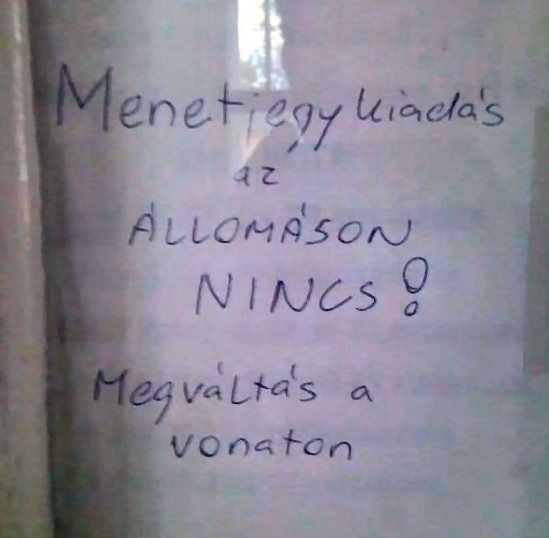 Menetjegy kiadás
az
ÁLLOMÁSON
NINCS!
Megváltás a
vonaton